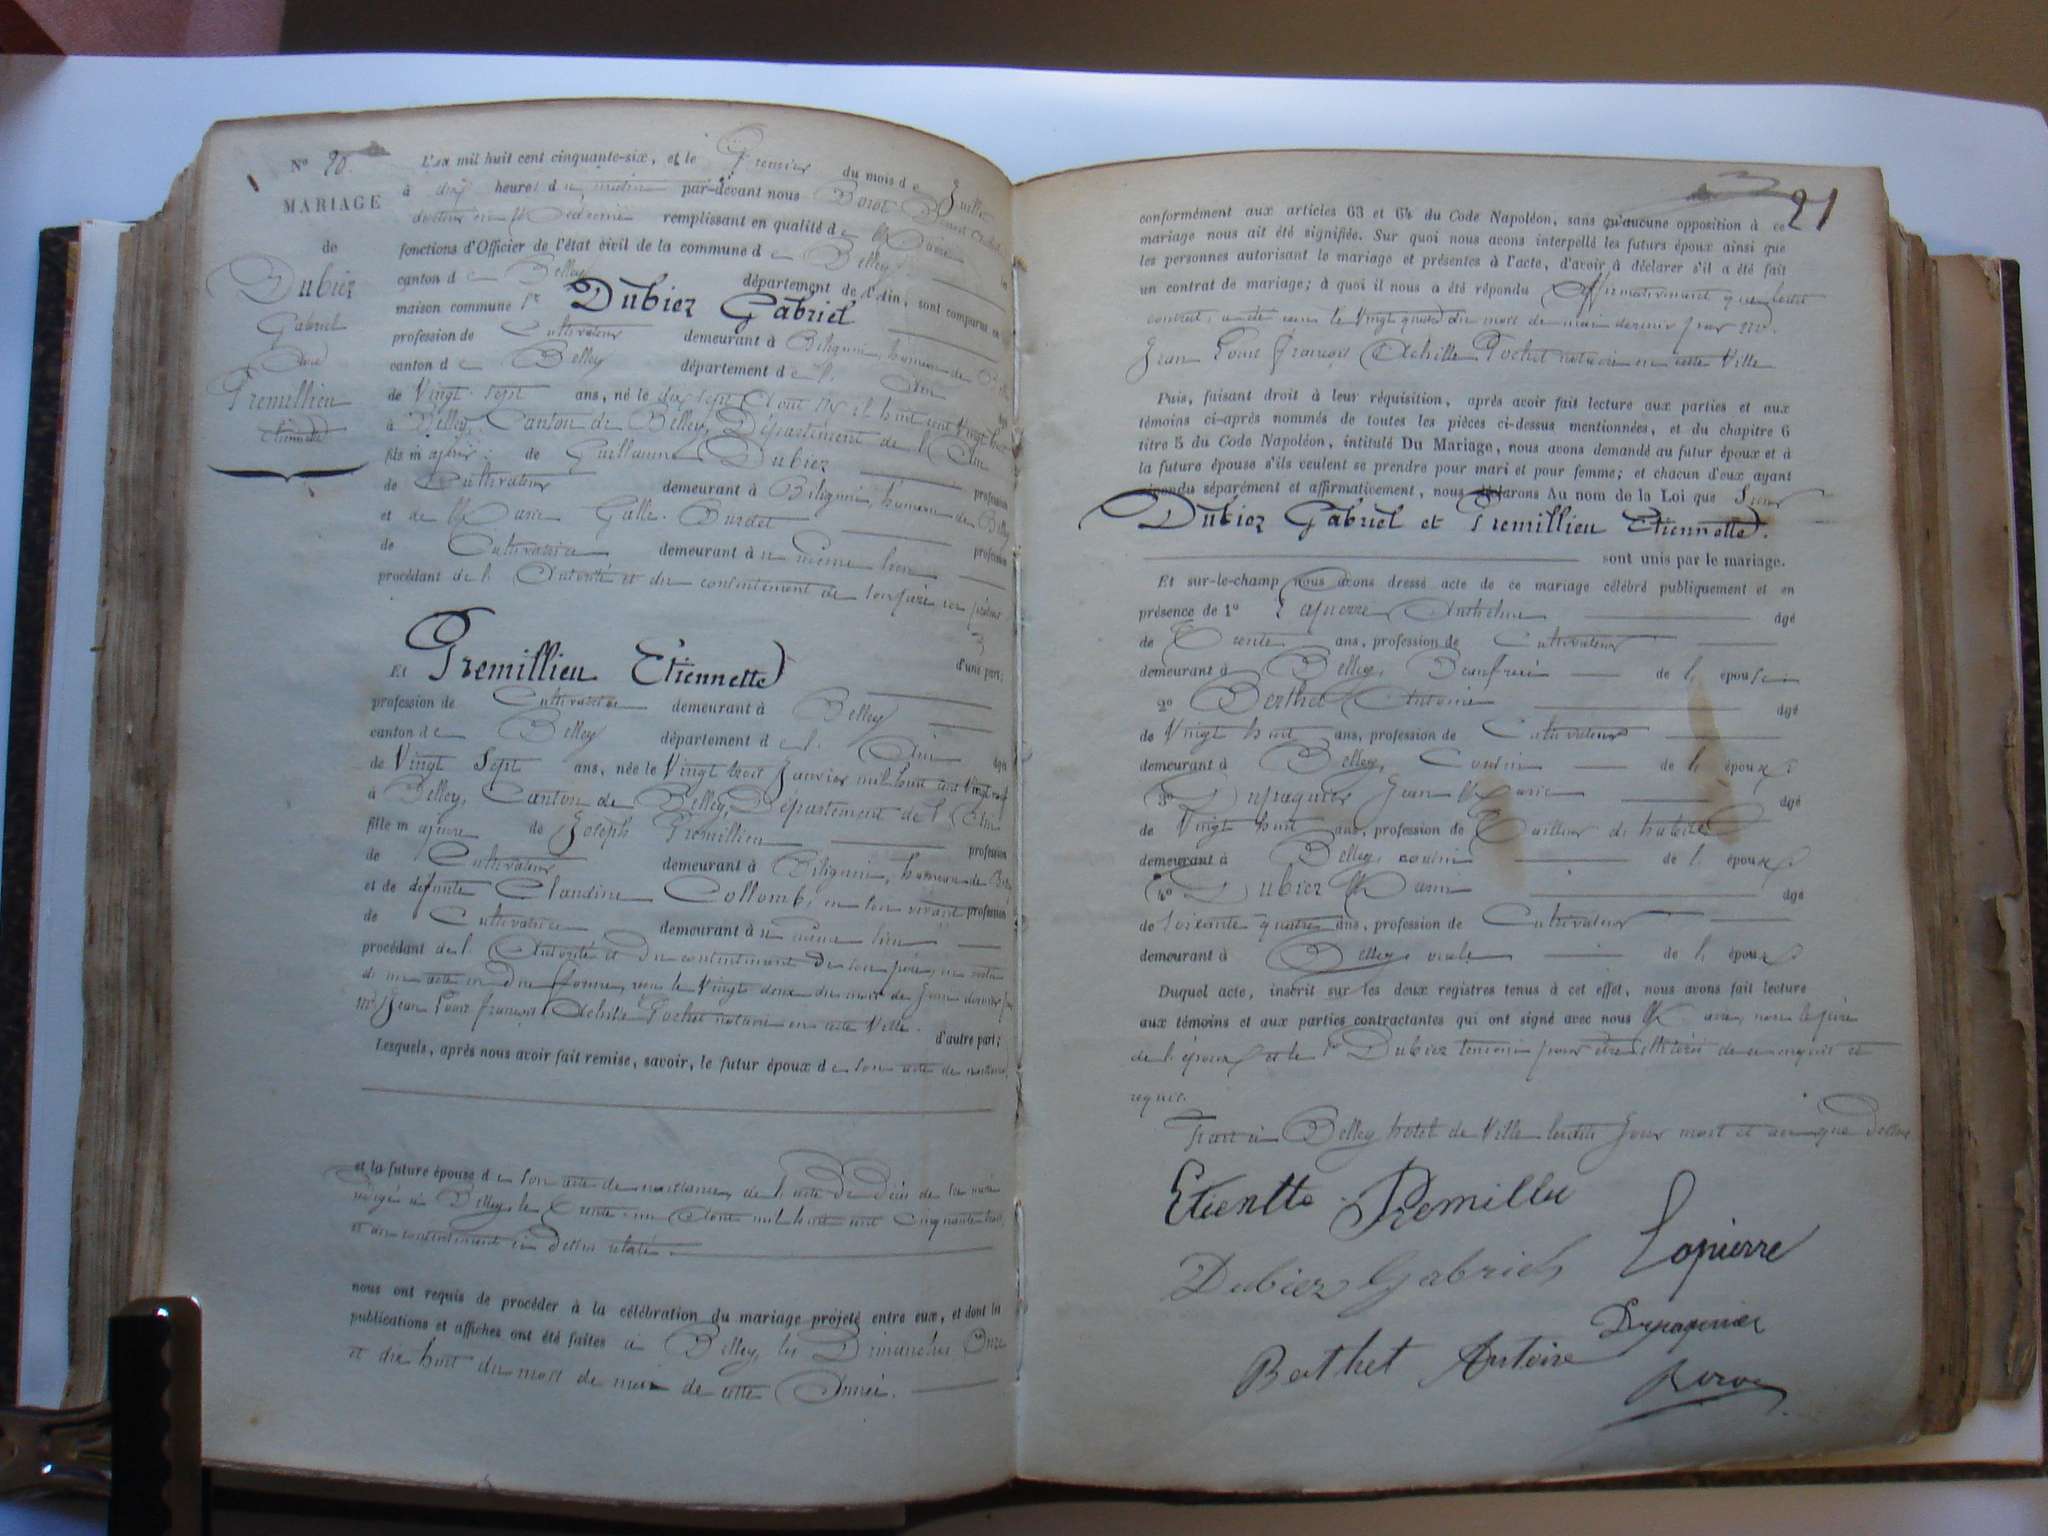 N° 20.
MARIAGE
de
Dubiez
Gabriel
avec
Premillieu
Etiennette
L'an mil huit cent cinquante-six, et le Premier du mois de Juillet
à dix heures du matin par-devant nous
docteur en Médecine remplissant en qualité de Maire
fonctions d'Officier de l'état civil de la commune de Belley
canton de Belley département de l'Ain, sont comparus en
maison commune Sr Dubiez Gabriel
profession de Cultivateur demeurant à Billignin, hameau de
canton de Belley département de l'Ain âgé
de Vingt-sept ans, né le dix sept Août mil huit cent Vingt huit
à Belley, Canton de Belley, Département de l'Ain
fils majeur de Guillaume Dubiez profession
de Cultivateur demeurant à Billignin, hameau de Belley
et de Marie Gallu-Burdet profession
de Cultivatrice demeurant au même lieu
procédant de l'Autorité et du consentement de son père ici présent
d'une part;
Et Premillieu Etiennette
profession de Cultivatrice demeurant à Belley
canton de Belley département de l'Ain âgé
de Vingt Sept ans, née le Vingt trois Janvier mil huit cent Vingt neuf
à Belley, Canton de Belley, Département de l'Ain
fille majeure de Joseph Premillieu profession
de Cultivateur demeurant à Billignin, hameau de
et de défunte Claudine Collomb, en son vivant profession
de Cultivatrice demeurant au même lieu
procédant de l'Autorité et du consentement de son père, en vertu
d'un acte en due forme, reçu le Vingt deux du mois de Juin dernier par
Me Jean Louis François Achille Pochet notaire en cette Ville.
d'autre part;
Lesquels, après nous avoir fait remise, savoir, le futur époux de son acte de naissance
et la future épouse de son acte de naissance, de l'acte de Décès de sa mère
rédigé à Belley, le Trente-un Août mil huit cent Cinquante
et du consentement ci Dessus relaté.
nous ont requis de procéder à la célébration du mariage projeté entre eux, et dont les
publications et affiches ont été faites à Belley, les Dimanches Onze
et dix huit du mois de mai de cette Année.
21
conformément aux articles 63 et 64 du Code Napoléon, sans qu'aucune opposition à ce
mariage nous ait été signifiée. Sur quoi nous avons interpellé les futurs époux ainsi que
les personnes autorisant le mariage et présentes à l'acte, d'avoir à déclarer s'il a été fait
un contrat de mariage; à quoi il nous a été répondu Affirmativement que ledit
contrat, a été reçu le Vingt quatre du mois de mai dernier par Me.
Jean Louis François Achille Pochet notaire en cette Ville
Puis, faisant droit à leur réquisition, après avoir fait lecture aux parties et aux
témoins ci-après nommés de toutes les pièces ci-dessus mentionnées, et du chapitre 6
titre 5 du Code Napoléon, intitulé Du Mariage, nous avons demandé au futur époux et à
la future épouse s'ils veulent se prendre pour mari et pour femme; et chacun d'eux ayant
répondu séparément et affirmativement, nous déclarons Au nom de la Loi que Sieur
Dubiez Gabriel et Premillieu Etiennette.
sont unis par le mariage.
Et sur-le-champ nous avons dressé acte de ce mariage célébré publiquement et en
présence de 1° Lapierre Anthelme âgé
de Trente ans, profession de Cultivateur
demeurant à Belley, Beaufrère de l'épouse
2° Berthet Antoine âgé
de Vingt huit ans, profession de Cultivateur
demeurant à Belley, Cousin de l'époux
3° Dupraquier Jean Marie âgé
de Vingt huit ans, profession de Tailleur d'habits
demeurant à Belley, cousin de l'époux
4° Dubiez Marin âgé
de soixante quatre ans, profession de Cultivateur
demeurant à Belley, oncle de l'époux
Duquel acte, inscrit sur les deux registres tenus à cet effet, nous avons fait lecture
aux témoins et aux parties contractantes qui ont signé avec nous Maire, non le père
de l'époux et le Sr Dubiez témoin pour être illitéré de ce enquis et
requis.
Fait à Belley hôtel de Ville lesdits Jour mois et an que Dessus
Etientte Premilleu
Dubiez Gabriel
Lapierre
Berthet Antoine